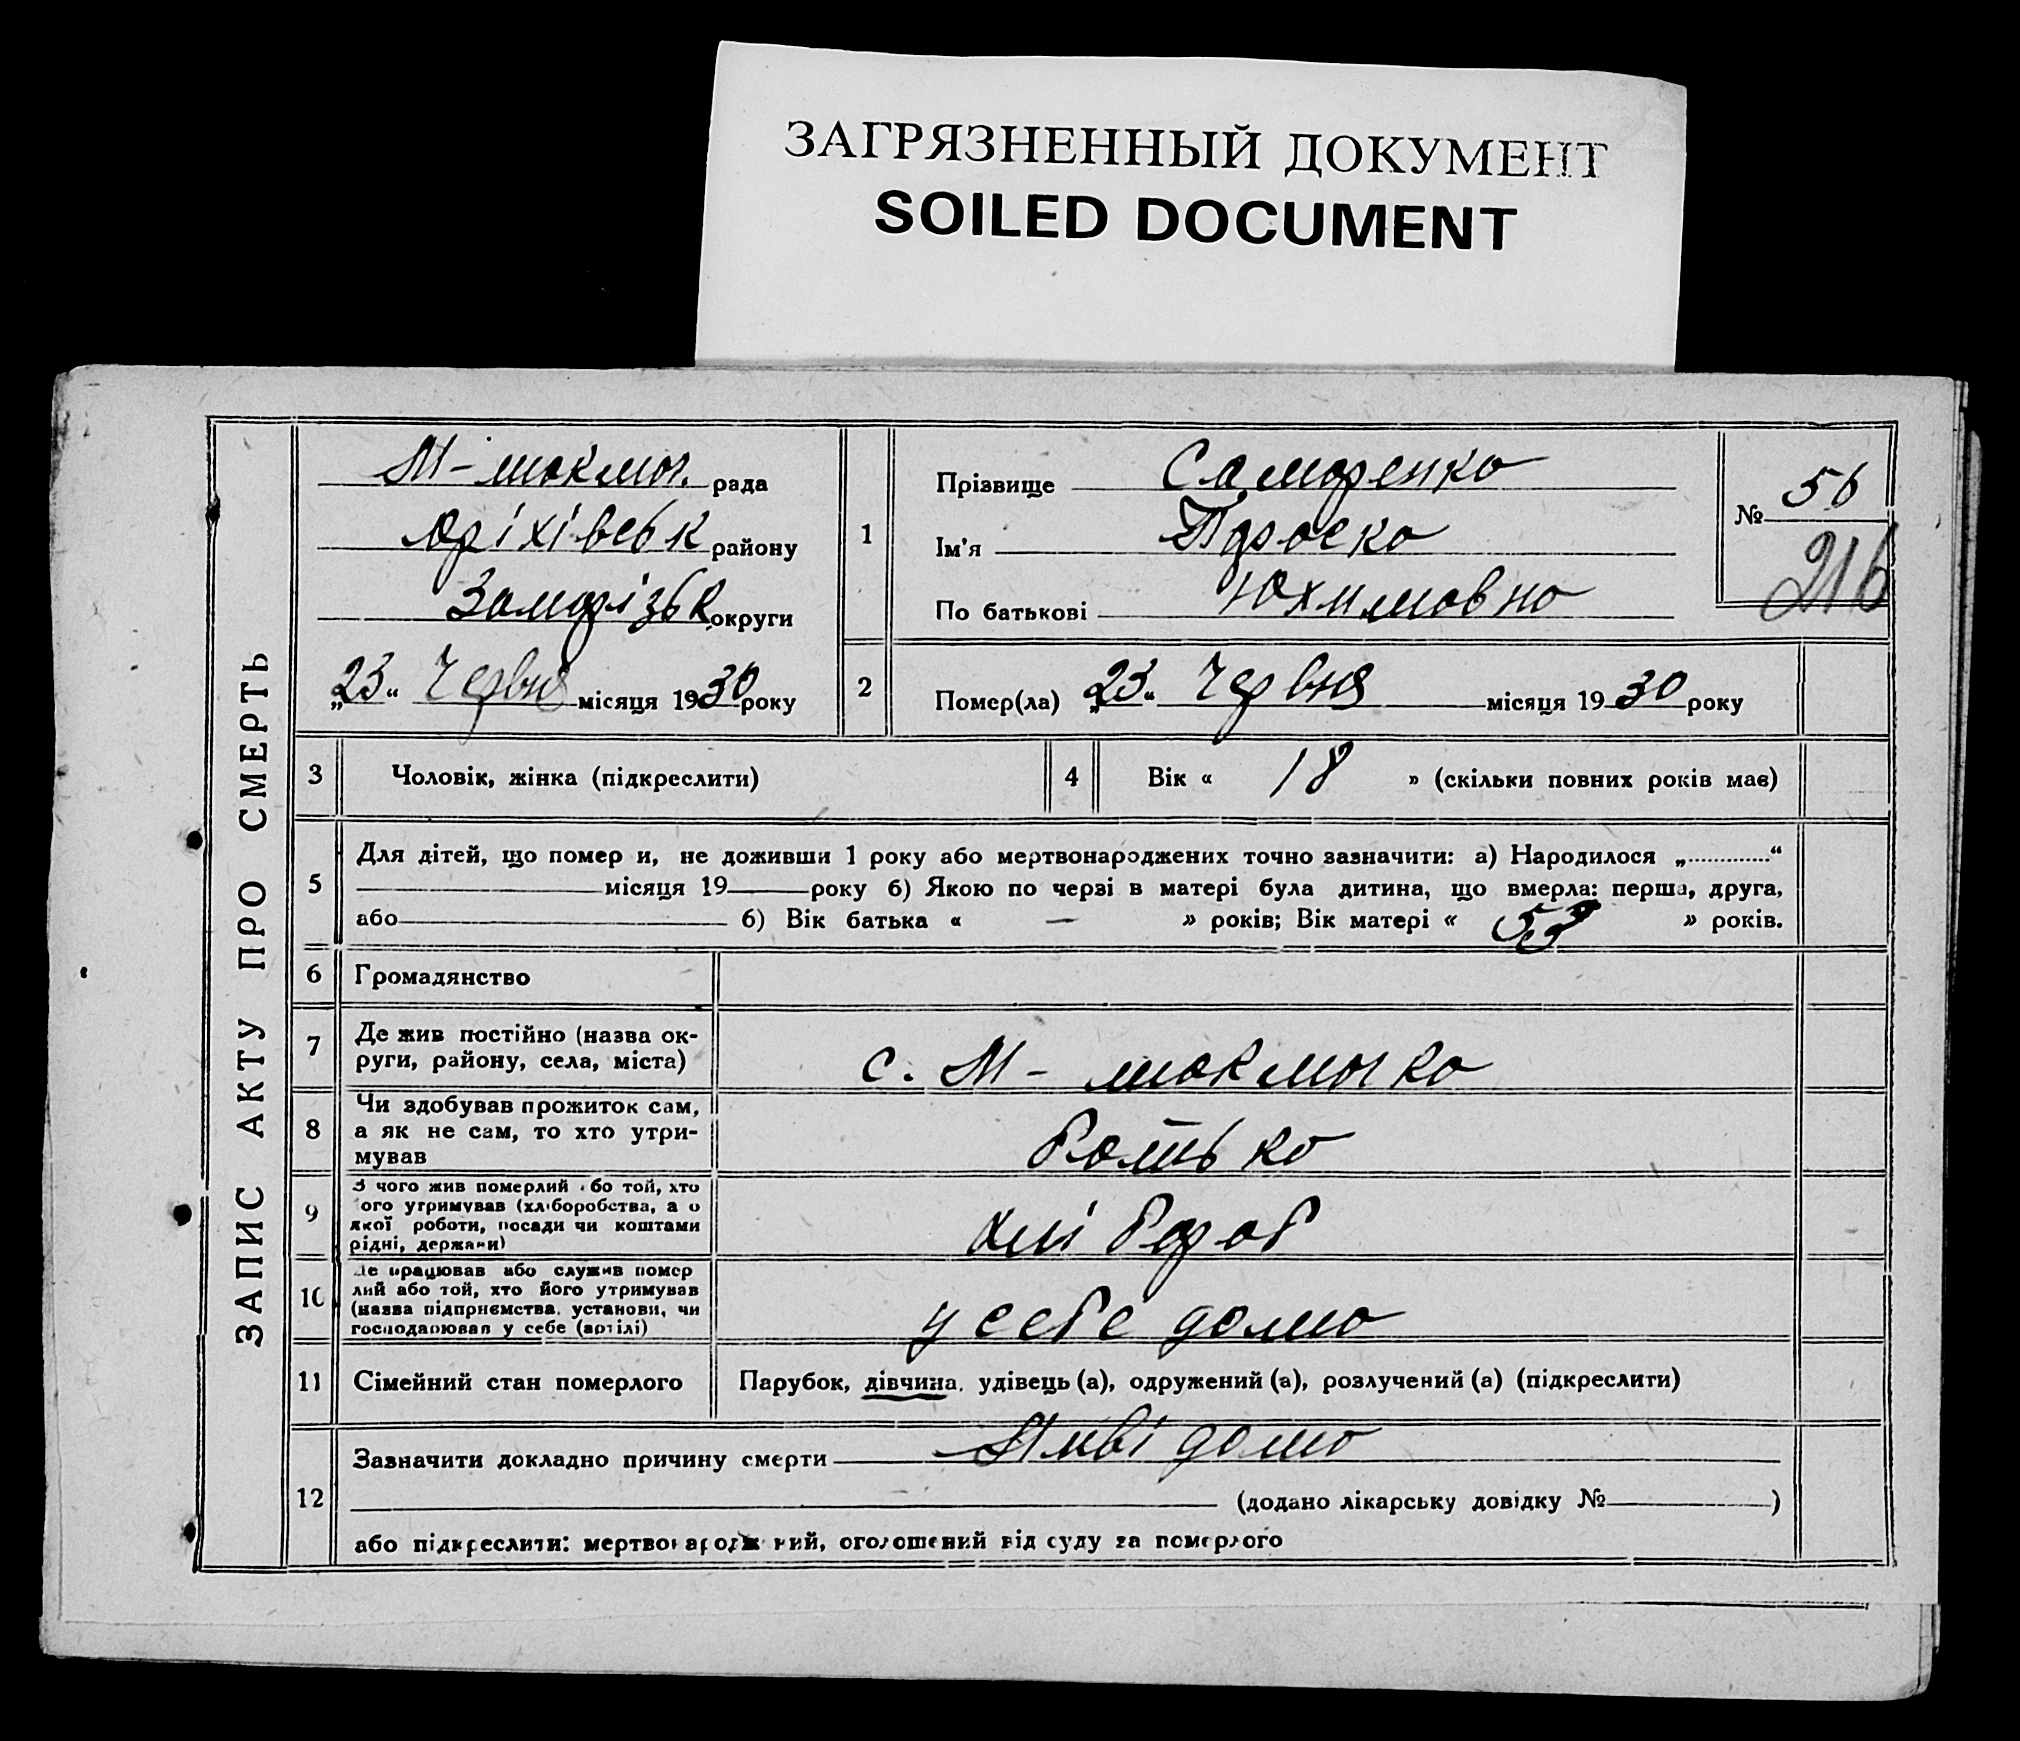 ЗАГРЯЗНЕННЫЙ ДОКУМЕНТ
SOILED DOCUMENT
ЗАПИС АКТУ ПРО СМЕРТЬ
М-токмач. рада
Оріхівськ району
Запорізьк округи
„23“ Червня місяця 1930 року
1
Прізвище Самаренко
Ім'я Параска
По батькові Юхимовна
№ 56
216
2
Помер(ла) „23“ Червня місяця 1930 року
3 Чоловік, жінка (підкреслити)
4 Вік « 18 » (скільки повних років має)
5
Для дітей, що помер и, не доживши 1 року або мертвонароджених точно зазначити: а) Народилося „.............“
місяця 19 року б) Якою по черзі в матері була дитина, що вмерла: перша, друга,
або б) Вік батька « — » років; Вік матері « 53 » років.
6 Громадянство
7
Де жив постійно (назва ок-
руги, району, села, міста)
с. М-токмачка
8
Чи здобував прожиток сам,
а як не сам, то хто утри-
мував
батько
9
З чого жив померлий або той, хто
його утримував (хліборобства, а о
якої роботи, посади чи коштами
рідні, держави)
хлібороб
10
Де працював або служив помер
лий або той, хто його утримував
(назва підприємства, установи, чи
господарював у себе (артілі)
у себе дома
11 Сімейний стан померлого
Парубок, дівчина, удівець (а), одружений (а), розлучений (а) (підкреслити)
12
Зазначити докладно причину смерти
(додано лікарську довідку № )
або підкреслити: мертвонароджений, оголошений від суду за померлого